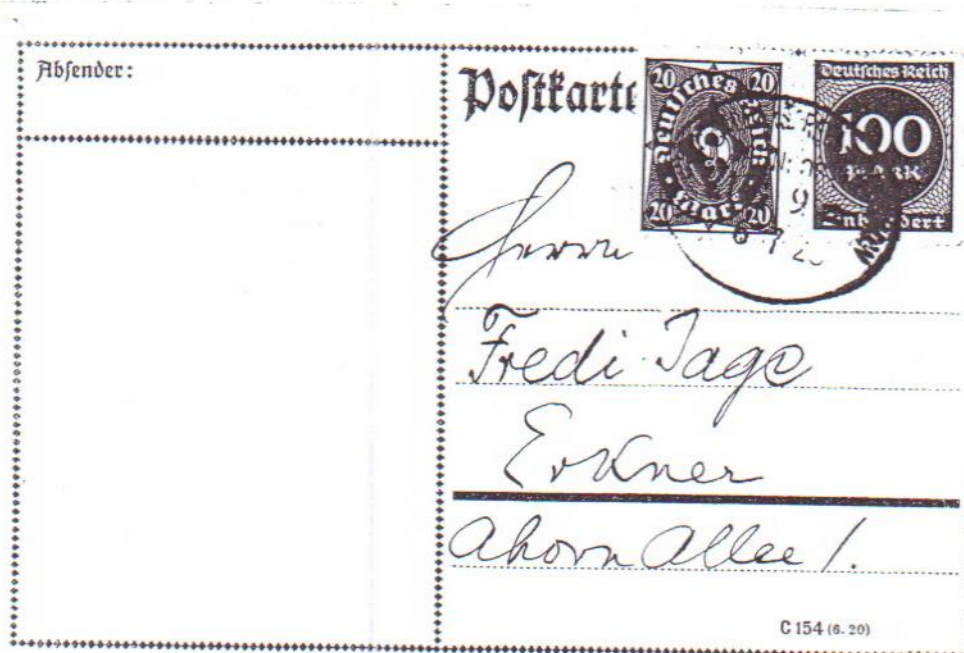 Absender:
Postkarte
20 20
Deutsches Reich
Mark
20 20
Deutsches Reich
100
MARK
Einhundert
9
8 7 2
Herrn
Fredi Tage
Erkner
Ahorn Allee 1.
C 154 (6. 20)